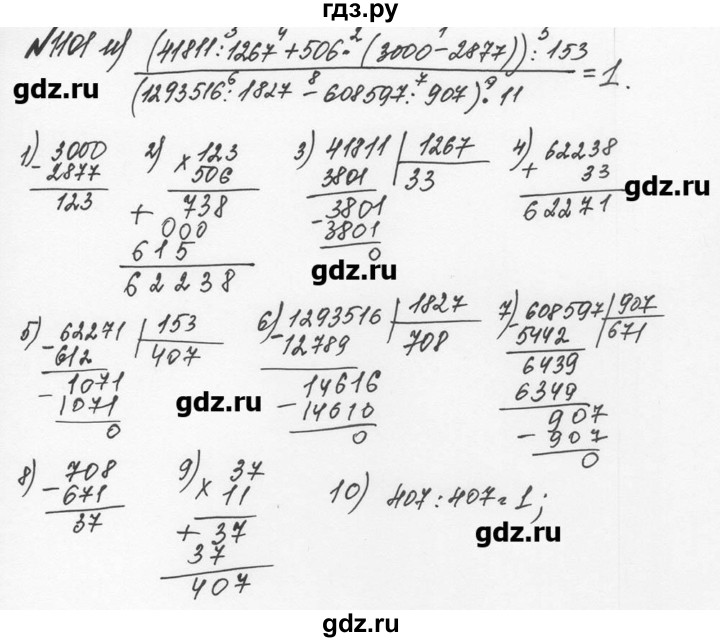 гдз.ру
№1101 и) (41811:1267+506·(3000-2877)):153
(1293516:1827-608597:907)·11 =1.
gdz.ru
gdz.ru
1) 3000
-2877
123
2) ×123
506
+738
000
615
62238
3) 41811 1267
3801 33
-3801
3801
0
4) 62238
+33
62271
gdz.ru
gdz.ru
5) -62271 153
612 407
-1071
1071
0
6) -1293516 1827
12789 708
-14616
14616
0
7) -608597 907
5442 671
6439
6349
907
-907
0
gdz.ru
8) -708
671
37
9) ×37
11
+37
37
407
10) 407:407=1;
gdz.ru
gdz.ru
gdz.ru